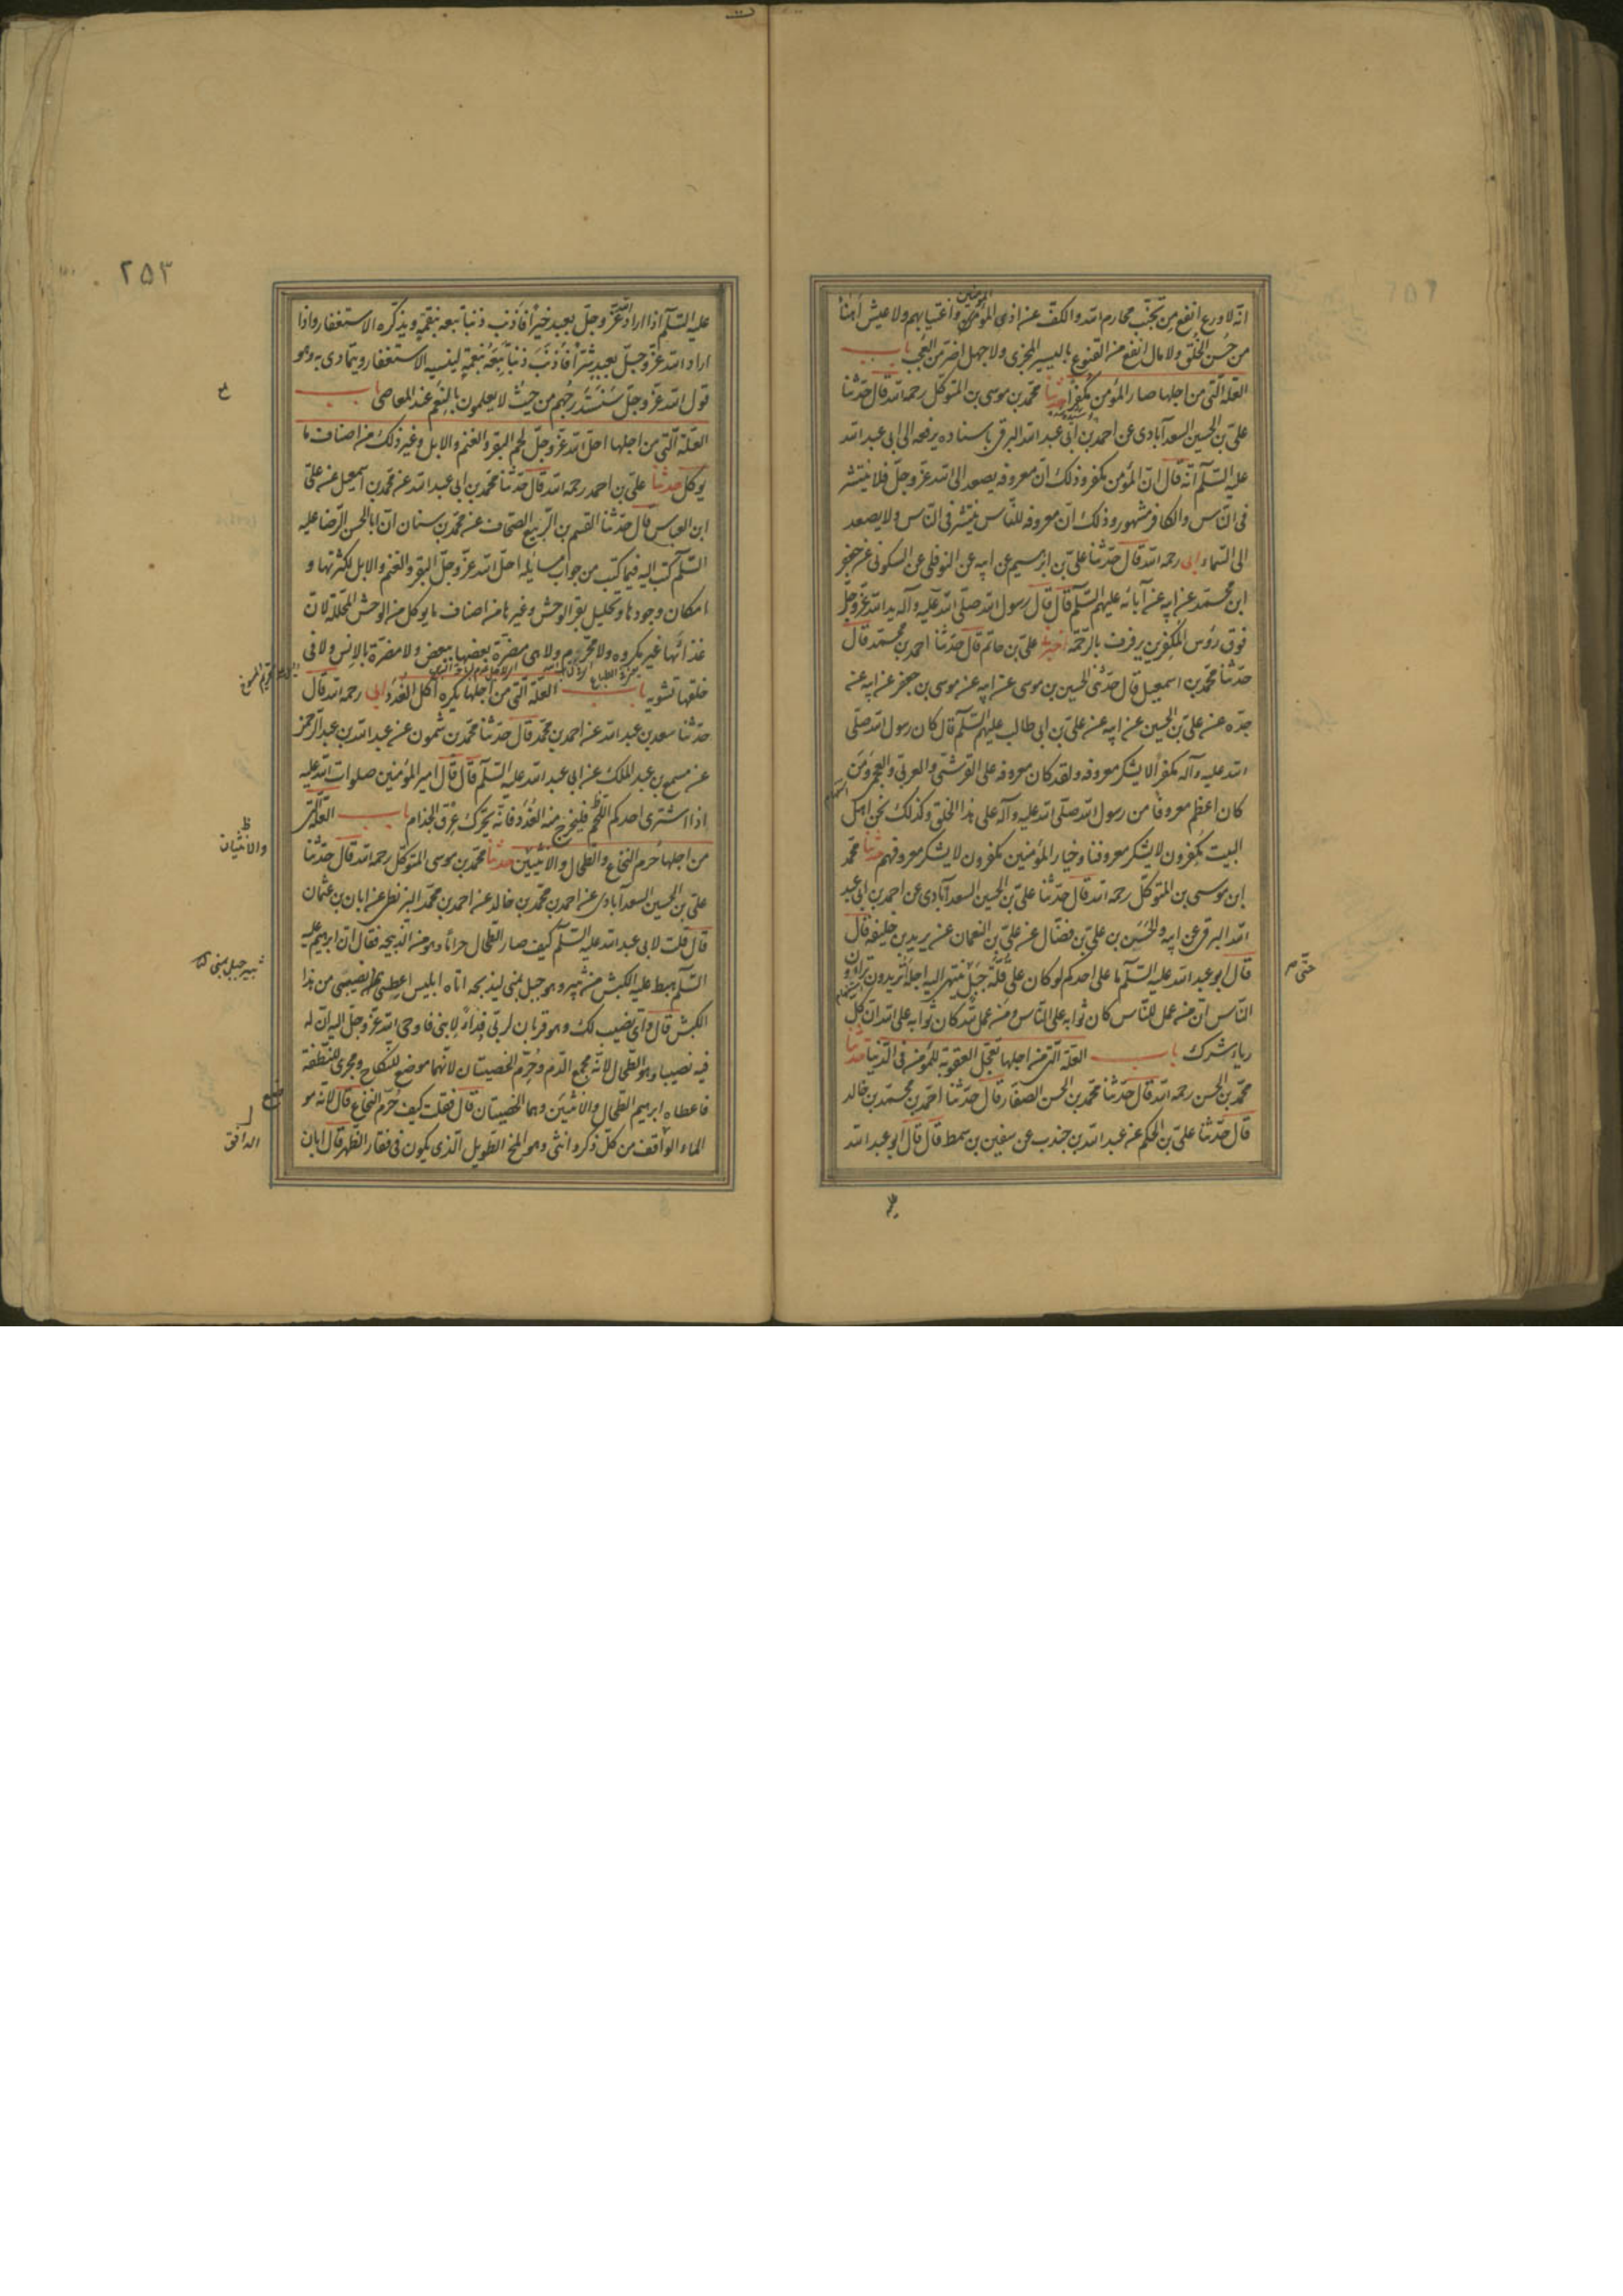 انه لا ورع انفع من تجنب محارم الله والكف عن اذى المؤمن واغتيابهم ولا عيش اهنأ
المؤمنين
من حسن الخلق ولا مال انفع من القنوع باليسير المجزى ولا جهل اضر من العجب باب
العلة التى من اجلها صار المؤمن مكفرا حدثنا محمد بن موسى بن المتوكل رحمه الله قال حدثنا
على بن الحسين السعدآبادى عن احمد بن ابى عبد الله البرقى باسناده يرفعه الى ابى عبد الله
عليه السلم انه قال ان المؤمن مكفر وذلك ان معروفه يصعد الى الله عز وجل فلا ينتشر
فى الناس والكافر مشهور وذلك ان معروفه للناس ينتشر فى الناس ولا يصعد
الى السماء ابى رحمه الله قال حدثنا على بن ابرهيم عن ابيه عن النوفلى عن السكونى عن جعفر
ابن محمد عن ابيه عن آبائه عليهم السلم قال قال رسول الله صلى الله عليه وآله يد الله عز وجل
فوق رؤس المكفرين يرفرف بالرحمة اخبرنا على بن حاتم قال حدثنا احمد بن محمد قال
حدثنا محمد بن اسمعيل قال حدثنى الحسين بن موسى عن ابيه عن موسى بن جعفر عن ابيه عن
جده عن على بن الحسين عن ابيه عن على بن ابى طالب عليهم السلم قال كان رسول الله صلى
الله عليه وآله مكفرا لا يشكر معروفه ولقد كان معروفه على القرشى والعربى والعجمى ومن
كان اعظم معروفا من رسول الله صلى الله عليه وآله على هذا الخلق وكذلك نحن اهل
البيت مكفرون لا يشكر معروفنا وخيار المؤمنين مكفرون لا يشكر معروفهم حدثنا محمد
ابن موسى بن المتوكل رحمه الله قال حدثنا على بن الحسين السعدآبادى عن احمد بن ابى عبد
الله البرقى عن ابيه والحسن بن على بن فضال عن على بن النعمان عن يزيد بن خليفة قال
قال ابو عبد الله عليه السلم ما على احدكم لو كان على قلة جبل ينتهى اليه اجله أتريدون تراؤن
حتى م
الناس ان من عمل للناس كان ثوابه على الناس ومن عمل لله كان ثوابه على الله ان كل
رياء شرك باب العلة التى من اجلها تعجل العقوبة للمؤمن فى الدنيا حدثنا
محمد بن الحسن رحمه الله قال حدثنا محمد بن الحسن الصفار قال حدثنا احمد بن محمد بن خالد
قال حدثنا على بن الحكم عن عبد الله بن جندب عن سفين بن سمط قال قال ابو عبد الله
٢٥٣
عليه السلم اذا اراد الله عز وجل بعبد خيرا فأذنب ذنبا تبعه بنقمة ويذكره الاستغفار واذا
اراد الله عز وجل بعبد شرا فأذنب ذنبا تبعه بنعمة لينسيه الاستغفار ويتمادى به وهو
قول الله عز وجل سنستدرجهم من حيث لا يعلمون بالنعم عند المعاصى باب
العلة التى من اجلها احل الله عز وجل لحم البقر والغنم والابل وغير ذلك من اصناف ما
يوكل حدثنا على بن احمد رحمه الله قال حدثنا محمد بن ابى عبد الله عن محمد بن اسمعيل عن على
ابن العباس قال حدثنا القسم بن الربيع الصحاف عن محمد بن سنان ان ابا الحسن الرضا عليه
السلم كتب اليه فيما كتب من جواب مسايله احل الله عز وجل البقر والغنم والابل لكثرتها و
امكان وجودها وتحليل بقر الوحش وغيرها من اصناف ما يوكل من الوحش المحللة لان
غذائها غير مكروه ولا محرم ولا هى مضرة بعضها ببعض ولا مضرة بالانس ولا فى
خلقها تشويه باب العلة التى من اجلها يكره اكل الغدد ابى رحمه الله قال
حدثنا سعد بن عبد الله عن احمد بن محمد قال حدثنا محمد بن شمون عن عبد الله بن عبد الرحمن
عن مسمع بن عبد الملك عن ابى عبد الله عليه السلم قال قال امير المؤمنين صلوات الله عليه
اذا اشترى احدكم اللحم فليخرج منه الغدد فانه يحرك عرق الجذام باب العلة التى
من اجلها حرم النخاع والطحال والانثيين حدثنا محمد بن موسى المتوكل رحمه الله قال حدثنا
ظ والانثيان
على بن الحسين السعدآبادى عن احمد بن محمد بن خالد عن احمد بن محمد البزنطى عن ابان بن عثمان
قال قلت لابى عبد الله عليه السلم كيف صار الطحال حراما وهو من الذبيحة فقال ان ابرهيم عليه
السلم هبط عليه الكبش من ثبير وهو جبل بمنى ليذبحه اتاه ابليس اعطنى نصيبى من هذا
ثبير جبل بمنى
الكبش قال واى نصيب لك وهو قربان لربى وفداء لابنى فاوحى الله عز وجل اليه ان له
فيه نصيبا وهو الطحال لانه مجمع الدم وحرم الخصيتان لانهما موضع للنكاح ومجرى للنطفة
فاعطاه ابرهيم الطحال والانثيين وهما الخصيتان قال فقلت كيف حرم النخاع قال لانه مو
الماء الواقف من كل ذكر وانثى وهو المخ الطويل الذى يكون فى فقار الظهر قال ابان
الدافق